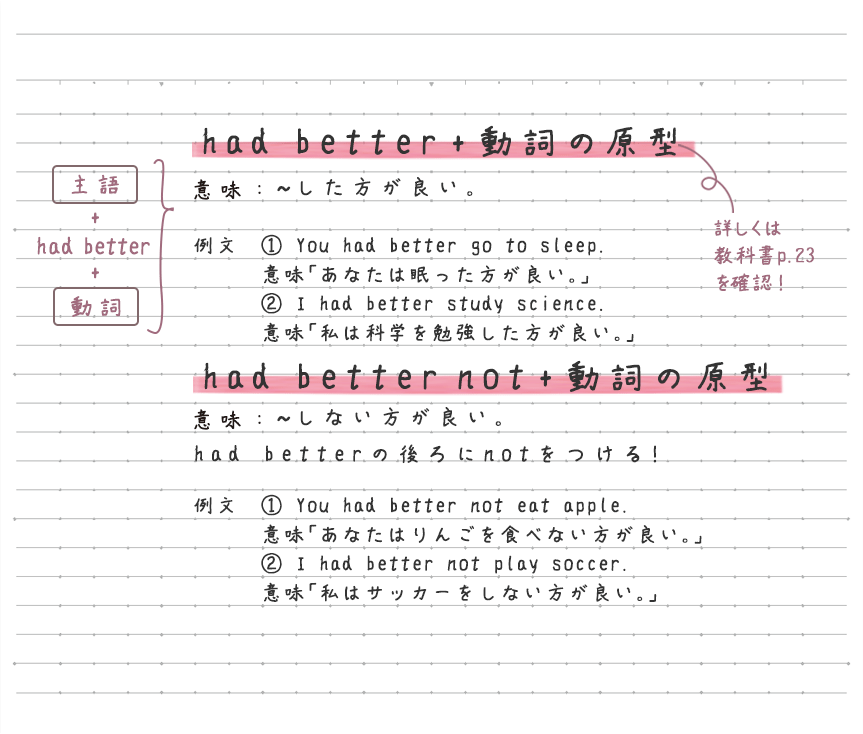 had better+動詞の原型
意味:~した方が良い。
主語
+
had better
+
動詞
詳しくは
教科書p.23
を確認!
例文 ① You had better go to sleep.
意味「あなたは眠った方が良い。」
② I had better study science.
意味「私は科学を勉強した方が良い。」
had better not+動詞の原型
意味:~しない方が良い。
had betterの後ろにnotをつける!
例文 ① You had better not eat apple.
意味「あなたはりんごを食べない方が良い。」
② I had better not play soccer.
意味「私はサッカーをしない方が良い。」